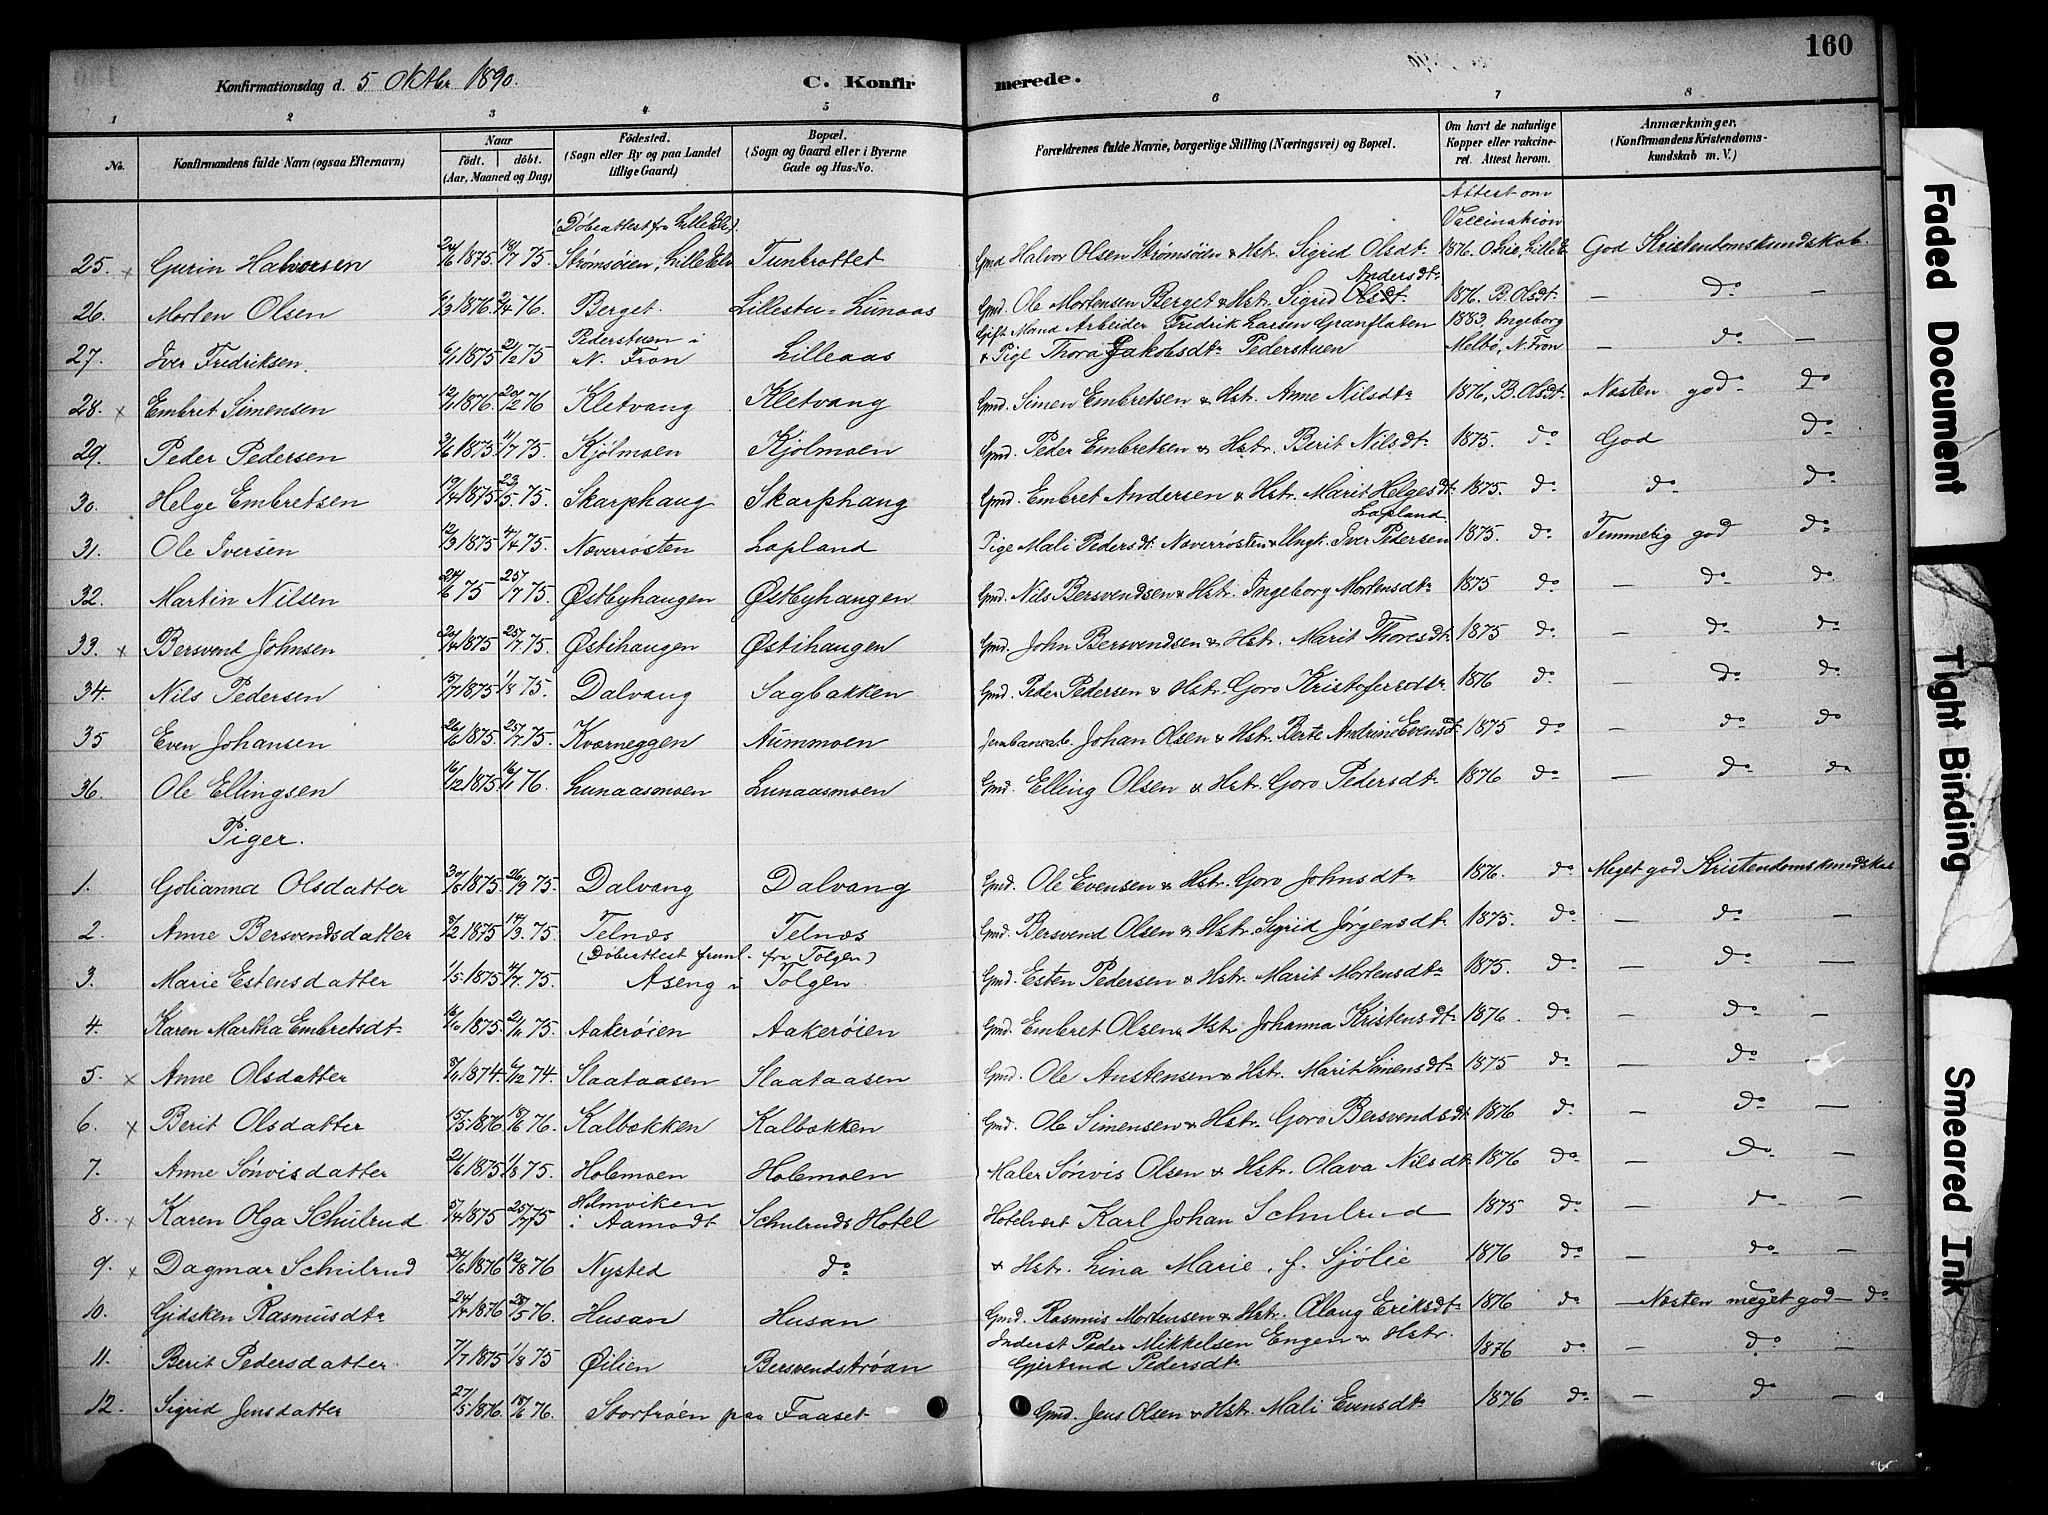 160
Konfirmationsdag d. 5 Oktbr 1890.
C. Konfirmerede.
1 2 3 4 5 6 7 8
No. Konfirmandens fulde Navn (ogsaa Efternavn) Naar født. døbt. (Aar, Maaned og Dag) Fødested. (Sogn eller By og paa Landet tillige Gaard) Bopæl. (Sogn og Gaard eller i Byerne Gade og Hus-No. Forældrenes fulde Navne, borgerlige Stilling (Næringsvei) og Bopæl. Om havt de naturlige Kopper eller vakcineret. Attest herom. Anmærkninger. (Konfirmandens Kristendomskundskab m. V.)
(Døbeattest fra Lilleelvd.) Attest om Vaccination
25. x Gurin Halvorsen 24/6 1875. 18/7 75. Strømsøien, Lilleelvd. Tunbrottet Gmd Halvor Olsen Strømsøien & Hstr. Sigrid Olsdtr. 1876. God Kristendomskundskab.
26. Morten Olsen 6/3 1876. 2/4 76. Berget. Lillestu-Lunaas Gmd. Ole Mortensen Berget & Hstr. Sigrid Andersdtr. 1876. B. Olsdtr. — do —
27. Iver Fredriksen. 6/1 1875 21/2 75 Pederstuen i N. Fron Lilleaas Gift Mand Arbeider Fredrik Larsen Granflaten & Pige Thora Jakobsdtr Pederstuen 1883. Ingeborg Melbö, N. Fron — do —
28. x Embret Simensen 12/1 1876. 20/2 76 Kletvang Kletvang Gmd. Simen Embretsen & Hstr. Anne Nilsdtr 1876, B. Olsdtr. Næsten god do
29. Peder Pedersen 2/6 1875. 11/7 75. Kjølmoen Kjølmoen Gmd. Peder Embretsen & Hstr. Berit Nilsdtr. 1875. do God do
30. Helge Embretsen 19/4 1875 23/5. 75. Skarphaug Skarphaug Gmd. Embret Andersen & Hstr. Marit Helgesdtr. 1875. do do do
31. Ole Iversen 12/3 1875 4/4 75. Nøverrøsten Lapland Pige Mali Pedersdtr. Nøverrøsten & Ungk. Iver Pedersen Lapland 1875. do Temmelig god do
32. Martin Nilsen 24/6 75 25/7 75. Østbyhaugen Østbyhaugen Gmd. Nils Bersvendsen & Hstr. Ingeborg Mortensdtr 1875 do — do do
33. x Bersvent Johnsen 20/4 1875 25/7. 75. Østihaugen Østihaugen Gmd. John Bersvendsen & Hstr. Marit Thoresdtr. 1875 do — do do
34. Nils Pedersen 1/8 75. Dalvang Sagbakken Gmd. Peder Pedersen & Hstr. Goro Kristofersdtr 1876 do — do do
35 Even Johansen 26/6 1875. 25/7. 75. Kværneggen Aummoen Jernbanearb. Johan Olsen & Hstr. Berte Andrine Evensdtr 1875 do — do do
36. Ole Ellingsen 16/12 1875 16/1 76. Lunaasmoen Lunaasmoen Gmd. Elling Olsen & Hstr. Goro Pedersdtr 1876 do — do do
Piger.
1. Golianna Olsdatter 30/8 1875 26/9 75. Dalvang Dalvang Gmd. Ole Evensen & Hstr. Goro Johnsdtr 1876. do Meget god Kristendomskundskab
2. Anne Bersvendsdatter 8/2 1875 14/3. 75. Telnæs Telnæs Gmd. Bersvend Olsen & Hstr. Sigrid Jørgensdtr 1875. do — do —
(Døbeattest freml. fra Tolgen)
3. Marie Estensdatter 1/5 1875 4/7. 75. Aseng i Tolgen. Gmd. Esten Pedersen & Hstr. Marit Mortensdtr 1875. do — do —
4. Karen Martha Embretsdtr 16/10 1875 21/11 75. Aakerøien Aakerøien Gmd. Embret Olsen & Hstr. Johanna Kristensdtr 1876. do — do —
5. x Anne Olsdatter 8/11 1874. 6/12 74. Slaataasen Slaataasen Gmd. Ole Austensen & Hstr. Marit Simensdtr 1875 do — do —
6. x Berit Olsdatter 15/5 1876 18/6 76. Kalbækken Kalbækken Gmd. Ole Simensen & Hstr. Goro Bersvendsdtr 1876 do — do —
7. Anne Sønvisdatter 21/6 1875 1/8 75. Holemoen Holemoen Maler Sønvis Olsen & Hstr. Olava Nilsdtr 1876 do — do —
8. x Karen Olga Schulrud 5/4 1875 25/7 75 i Aamodt Schulruds Hotel Hotelvært Karl Johan Schulrud 1875 do — do —
9. x Dagmar Schulrud 24/6 1876 12/8 76 Nysted do & Hstr. Lina Marie, f. Sjølie 1876 do — do —
10. Gidsken Rasmusdtr 24/4 1876 28/5 76. Husan Husan Gmd. Rasmus Mortensen & Hstr. Olaug Eriksdtr 1876 do — Næsten meget god — do
11. Berit Pedersdatter. 7/7 1875 1/8 75 Øilien Bersvendstrøan Inderst Peder Mikkelsen Engen & Hstr. Gjertrud Pedersdtr 1876 do — do —
12. Sigrid Jensdatter 27/5 1876. 18/6 76. Stortrøen paa Faaset Gmd. Jens Olsen & Hstr. Mali Evensdtr 1876 do — do —
Faded Document
Tight Binding
Smeared Ink